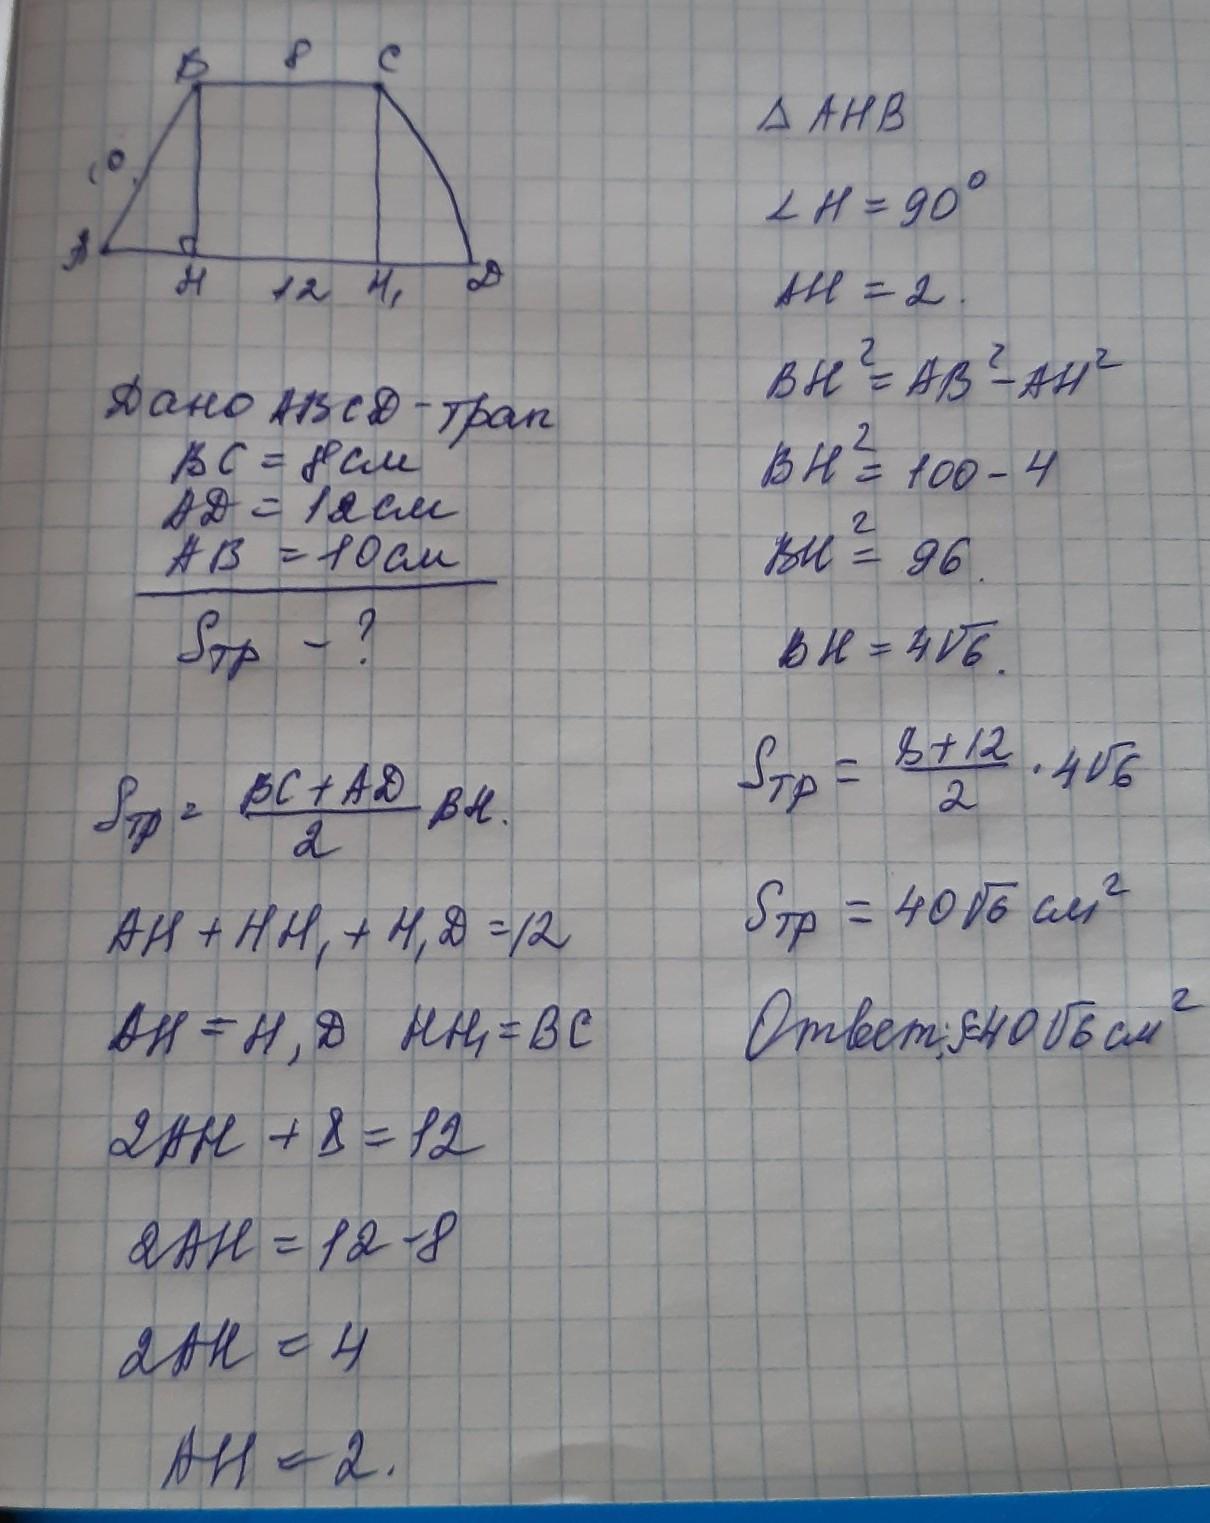 B 8 C
10
A H 12 H₁ D
Дано ABCD - трап
BC = 8 см
AD = 12 см
AB = 10 см
Sтр - ?
Sтр = (BC + AD)/2 BH.
AH + HH₁ + H₁D = 12
AH = H₁D HH₁ = BC
2AH + 8 = 12
2AH = 12 - 8
2AH = 4
AH = 2.
△ AHB
∠H = 90°
AH = 2.
BH² = AB² - AH²
BH² = 100 - 4
BH² = 96.
BH = 4√6.
Sтр = (8 + 12)/2 · 4√6
Sтр = 40√6 см²
Ответ: S=40√6 см²